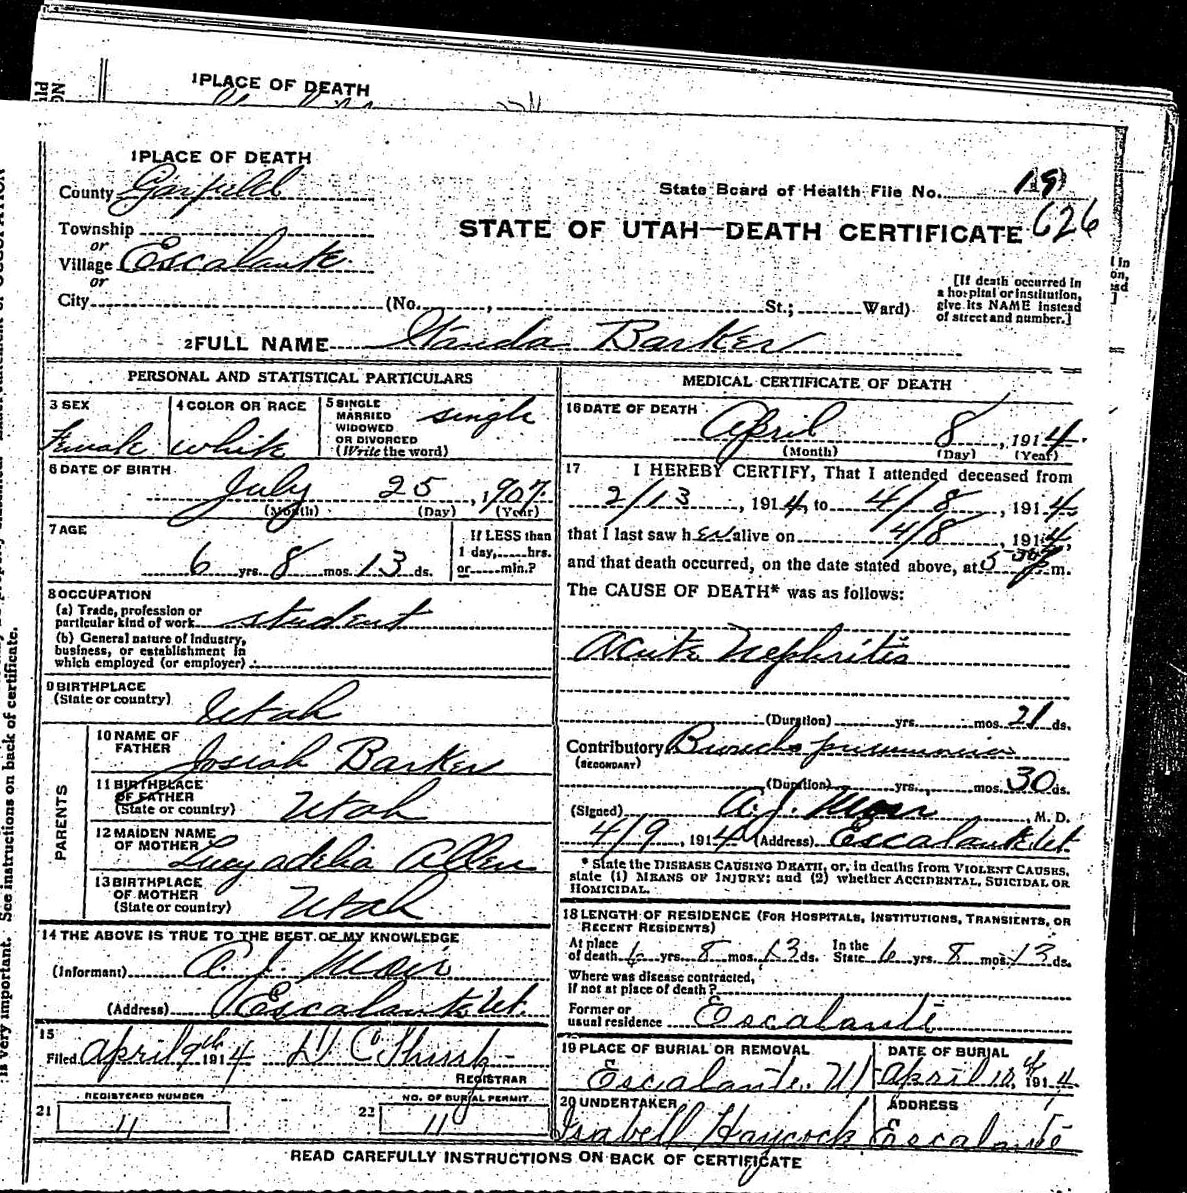 1 PLACE OF DEATH
1 PLACE OF DEATH
County Garfield
State Board of Health File No. 19
626
Township
or
STATE OF UTAH—DEATH CERTIFICATE
Village Escalante
or
City (No. , St.; Ward)
[If death occurred in a hospital or institution, give its NAME instead of street and number.]
2 FULL NAME Wanda Barker
PERSONAL AND STATISTICAL PARTICULARS
3 SEX Female
4 COLOR OR RACE white
5 SINGLE MARRIED WIDOWED OR DIVORCED (Write the word) single
6 DATE OF BIRTH
July 25, 1907
(Month) (Day) (Year)
7 AGE
6 yrs. 8 mos. 13 ds.
If LESS than 1 day, hrs. or min.?
8 OCCUPATION
(a) Trade, profession or particular kind of work student
(b) General nature of industry, business, or establishment in which employed (or employer)
9 BIRTHPLACE
(State or country) Utah
PARENTS
10 NAME OF FATHER Josiah Barker
11 BIRTHPLACE OF FATHER (State or country) Utah
12 MAIDEN NAME OF MOTHER Lucy adelia Allen
13 BIRTHPLACE OF MOTHER (State or country) Utah
14 THE ABOVE IS TRUE TO THE BEST OF MY KNOWLEDGE
(Informant) A. J.
(Address) Escalante Ut.
15
Filed April 9th 1914
REGISTRAR
21 REGISTERED NUMBER 11
22 NO. OF BURIAL PERMIT 11
MEDICAL CERTIFICATE OF DEATH
16 DATE OF DEATH
April 8, 1914
(Month) (Day) (Year)
17 I HEREBY CERTIFY, That I attended deceased from
2/13, 1914, to 4/8, 1914
that I last saw her alive on 4/8, 1914,
and that death occurred, on the date stated above, at 5-30 p m.
The CAUSE OF DEATH* was as follows:
Acute Nephritis
(Duration) yrs. mos. 21 ds.
Contributory pneumonia
(SECONDARY)
(Duration) yrs. mos. 30 ds.
(Signed) A. J. , M. D.
4/9, 1914 (Address) Escalante Ut.
* State the DISEASE CAUSING DEATH, or, in deaths from VIOLENT CAUSES,
state (1) MEANS OF INJURY; and (2) whether ACCIDENTAL, SUICIDAL OR
HOMICIDAL.
18 LENGTH OF RESIDENCE (FOR HOSPITALS, INSTITUTIONS, TRANSIENTS, OR
RECENT RESIDENTS)
At place of death 6 yrs. 8 mos. 13 ds. In the State 6 yrs. 8 mos. 13 ds.
Where was disease contracted,
if not at place of death?
Former or usual residence Escalante
19 PLACE OF BURIAL OR REMOVAL
Escalante
DATE OF BURIAL
April 10, 1914
20 UNDERTAKER
Isabell Haycock
ADDRESS
Escalante
READ CAREFULLY INSTRUCTIONS ON BACK OF CERTIFICATE
is very important. See instructions on back of certificate.